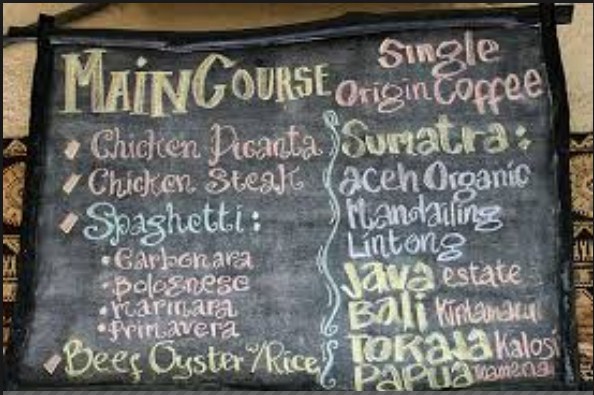 MAIN COURSE
Chicken Picanta
Chicken Steak
Spaghetti:
• Carbonara
• Bolognese
• Marinara
• Primavera
Beef Oyster w/Rice
Single
Origin Coffee
Sumatra:
aceh Organic
Mandailing
Lintong
Java estate
Bali Kintamani
TORAJA Kalosi
PAPUA